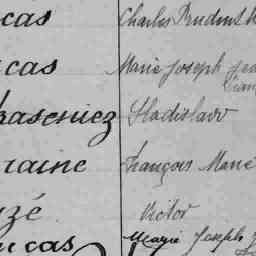 cas Charles Prudent
cas Marie Joseph
raseniez Stadislaw
raine François Marie
zé Victor
ucas Marie Joseph